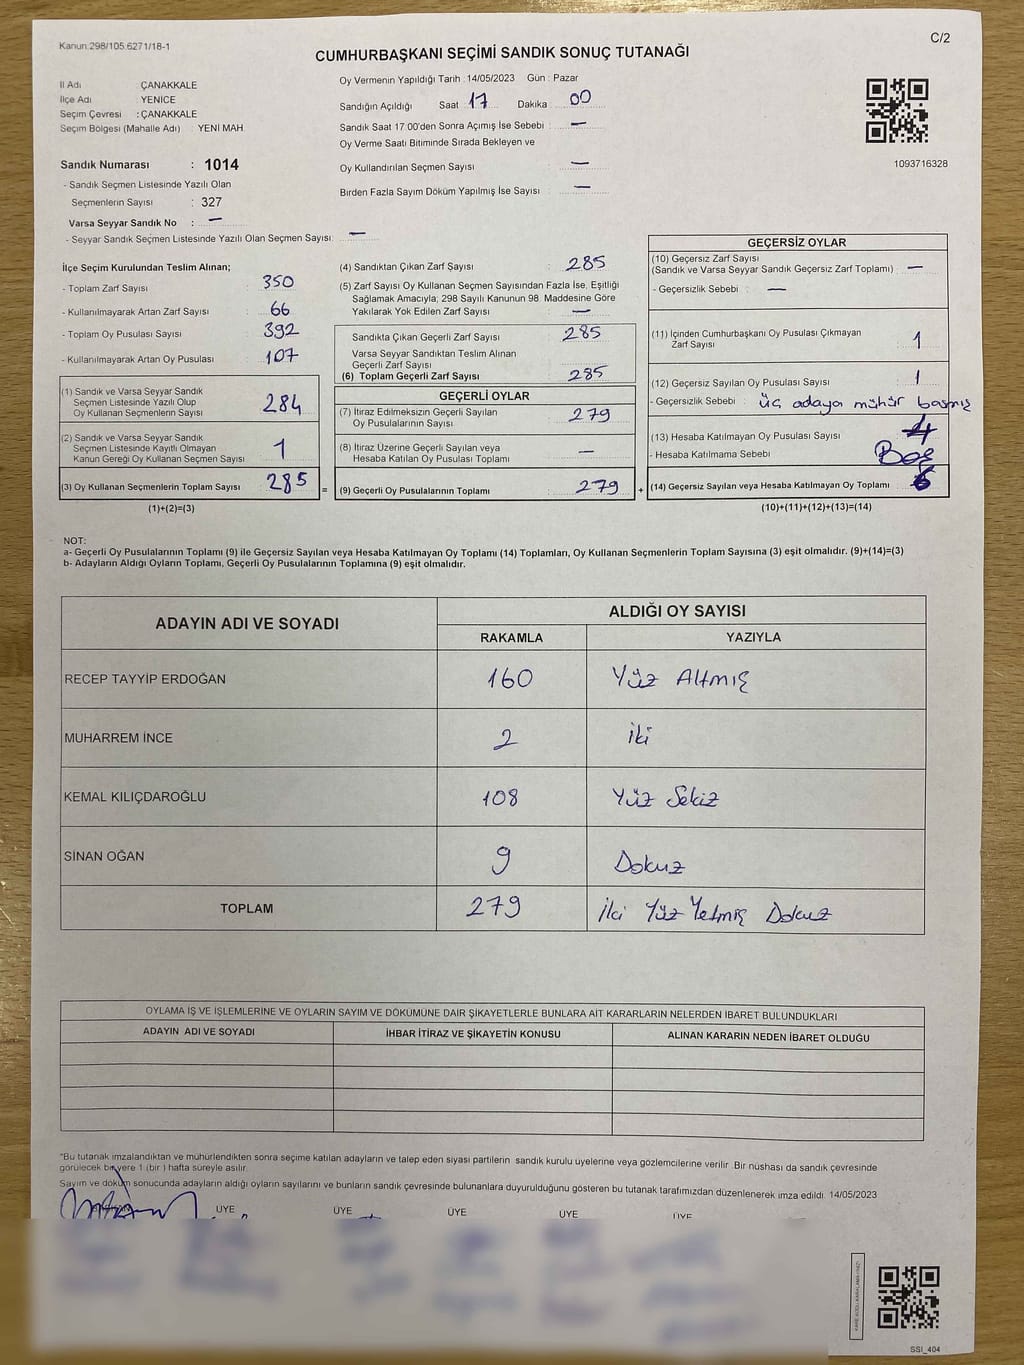 Kanun:298/105.6271/18-1
C/2
CUMHURBAŞKANI SEÇİMİ SANDIK SONUÇ TUTANAĞI
İl Adı ÇANAKKALE
İlçe Adı : YENİCE
Seçim Çevresi : ÇANAKKALE
Seçim Bölgesi (Mahalle Adı) : YENİ MAH
Sandık Numarası : 1014
- Sandık Seçmen Listesinde Yazılı Olan
Seçmenlerin Sayısı : 327
Varsa Seyyar Sandık No : —
- Seyyar Sandık Seçmen Listesinde Yazılı Olan Seçmen Sayısı: —
Oy Vermenin Yapıldığı Tarih : 14/05/2023 Gün : Pazar
Sandığın Açıldığı Saat 17 Dakika 00
Sandık Saat 17:00'den Sonra Açımış İse Sebebi : —
Oy Verme Saati Bitiminde Sırada Bekleyen ve
Oy Kullandırılan Seçmen Sayısı : —
Birden Fazla Sayım Döküm Yapılmış İse Sayısı : —
1093716328
İlçe Seçim Kurulundan Teslim Alınan;
- Toplam Zarf Sayısı : 350
- Kullanılmayarak Artan Zarf Sayısı : 66
- Toplam Oy Pusulası Sayısı : 392
- Kullanılmayarak Artan Oy Pusulası : 107
(1) Sandık ve Varsa Seyyar Sandık
Seçmen Listesinde Yazılı Olup
Oy Kullanan Seçmenlerin Sayısı 284
(2) Sandık ve Varsa Seyyar Sandık
Seçmen Listesinde Kayıtlı Olmayan
Kanun Gereği Oy Kullanan Seçmen Sayısı 1
(3) Oy Kullanan Seçmenlerin Toplam Sayısı 285 =
(1)+(2)=(3)
(4) Sandıktan Çıkan Zarf Sayısı : 285
(5) Zarf Sayısı Oy Kullanan Seçmen Sayısından Fazla İse, Eşitliği
Sağlamak Amacıyla; 298 Sayılı Kanunun 98. Maddesine Göre
Yakılarak Yok Edilen Zarf Sayısı : —
Sandıkta Çıkan Geçerli Zarf Sayısı : 285
Varsa Seyyar Sandıktan Teslim Alınan
Geçerli Zarf Sayısı
(6) Toplam Geçerli Zarf Sayısı : 285
GEÇERLİ OYLAR
(7) İtiraz Edilmeksizin Geçerli Sayılan
Oy Pusulalarının Sayısı : 279
(8) İtiraz Üzerine Geçerli Sayılan veya
Hesaba Katılan Oy Pusulası Toplamı : —
(9) Geçerli Oy Pusulalarının Toplamı : 279 +
GEÇERSİZ OYLAR
(10) Geçersiz Zarf Sayısı
(Sandık ve Varsa Seyyar Sandık Geçersiz Zarf Toplamı) : —
- Geçersizlik Sebebi : —
(11) İçinden Cumhurbaşkanı Oy Pusulası Çıkmayan
Zarf Sayısı : 1
(12) Geçersiz Sayılan Oy Pusulası Sayısı : 1
- Geçersizlik Sebebi : üç adaya mühür basmış
(13) Hesaba Katılmayan Oy Pusulası Sayısı : 4
- Hesaba Katılmama Sebebi : Boş
(14) Geçersiz Sayılan veya Hesaba Katılmayan Oy Toplamı : 6
(10)+(11)+(12)+(13)=(14)
NOT:
a- Geçerli Oy Pusulalarının Toplamı (9) ile Geçersiz Sayılan veya Hesaba Katılmayan Oy Toplamı (14) Toplamları, Oy Kullanan Seçmenlerin Toplam Sayısına (3) eşit olmalıdır. (9)+(14)=(3)
b- Adayların Aldığı Oyların Toplamı, Geçerli Oy Pusulalarının Toplamına (9) eşit olmalıdır.
ADAYIN ADI VE SOYADI ALDIĞI OY SAYISI
RAKAMLA YAZIYLA
RECEP TAYYİP ERDOĞAN 160 Yüz Altmış
MUHARREM İNCE 2 İki
KEMAL KILIÇDAROĞLU 108 Yüz Sekiz
SİNAN OĞAN 9 Dokuz
TOPLAM 279 İki Yüz Yetmiş Dokuz
OYLAMA İŞ VE İŞLEMLERİNE VE OYLARIN SAYIM VE DÖKÜMÜNE DAİR ŞİKAYETLERLE BUNLARA AİT KARARLARIN NELERDEN İBARET BULUNDUKLARI
ADAYIN ADI VE SOYADI İHBAR İTİRAZ VE ŞİKAYETİN KONUSU ALINAN KARARIN NEDEN İBARET OLDUĞU
"Bu tutanak imzalandıktan ve mühürlendikten sonra seçime katılan adayların ve talep eden siyasi partilerin sandık kurulu üyelerine veya gözlemcilerine verilir .Bir nüshası da sandık çevresinde
görülecek bir yere 1 (bir ) hafta süreyle asılır.
Sayım ve döküm sonucunda adayların aldığı oyların sayılarını ve bunların sandık çevresinde bulunanlara duyurulduğunu gösteren bu tutanak tarafımızdan düzenlenerek imza edildi. 14/05/2023
ÜYE ÜYE ÜYE ÜYE ÜYE
SSI_404